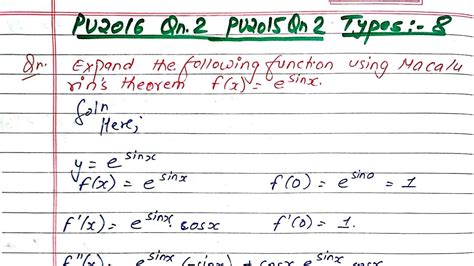 PU2016 Qn.2 PU2015 Qn 2 Types:- 8
Qn. Expand the following function using Macalu
rin's theorem f(x) = e^sinx.
Soln
Here;
y = e^sinx
f(x) = e^sinx f(0) = e^sin0 = 1
f'(x) = e^sinx. cosx f'(0) = 1.
f''(x) = e^sinx (-sinx) + cosx e^sinx cosx